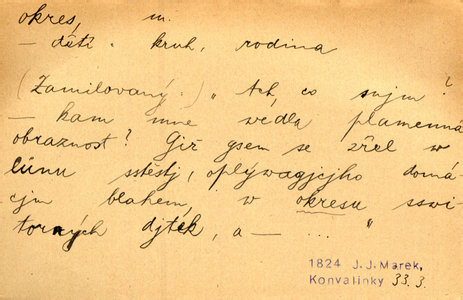 okres, m.
– dětí : kruh, rodina
(Zamilovaný:) „Ach, co sujm?
– kam mne wedla plamenná
obraznost? Giž gsem se zřel w
lůnu sstěstj, oplýwagjcjho domá-
cjm blahem, w okresu sswi-
torných djtek, a – ... "
1824 J. J. Marek,
Konvalinky 33.3.